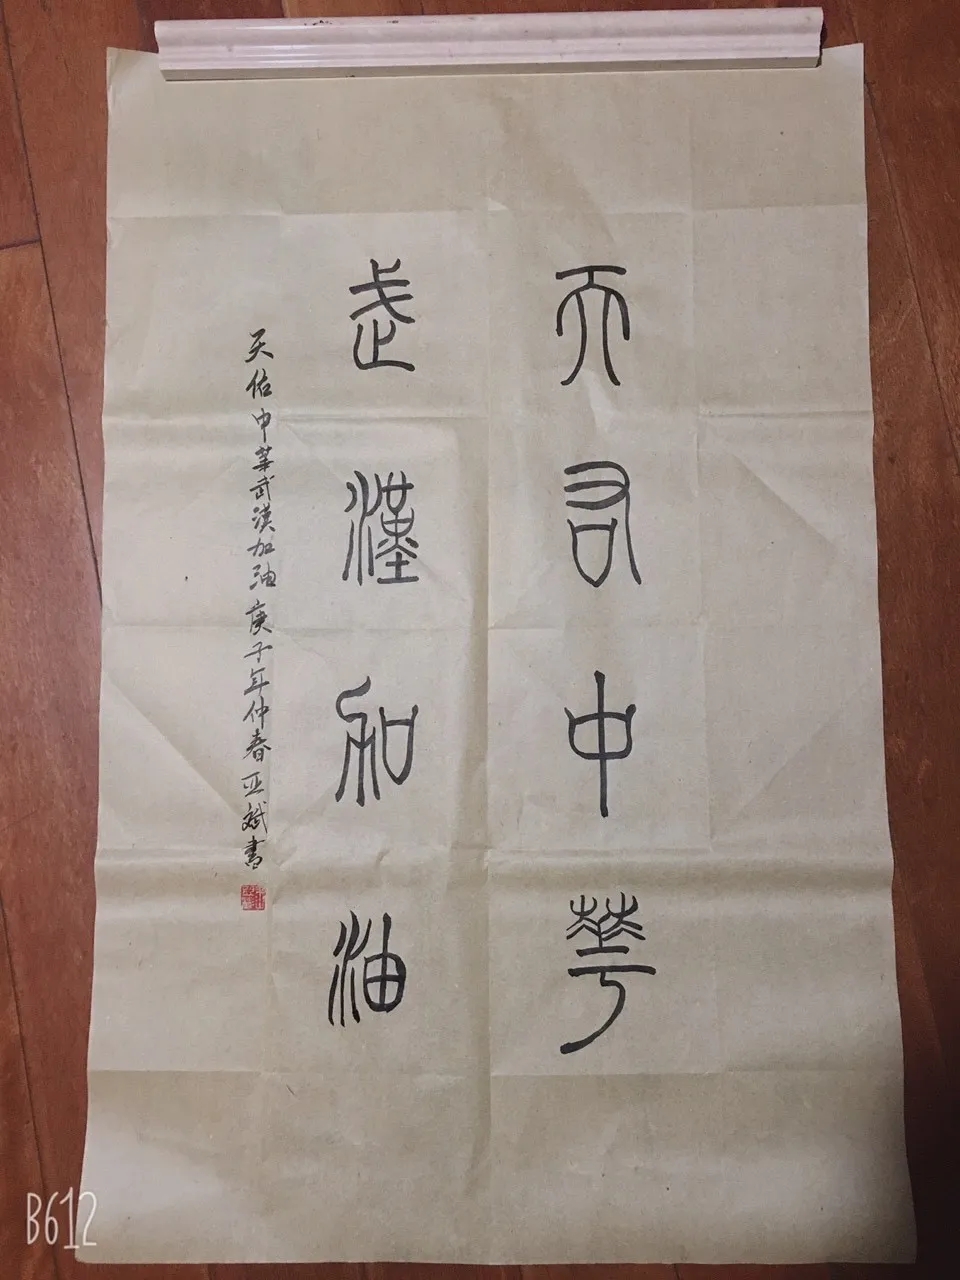 天右中華
武漢加油
天佑中華武漢加油庚子年仲春亚斌書
B612